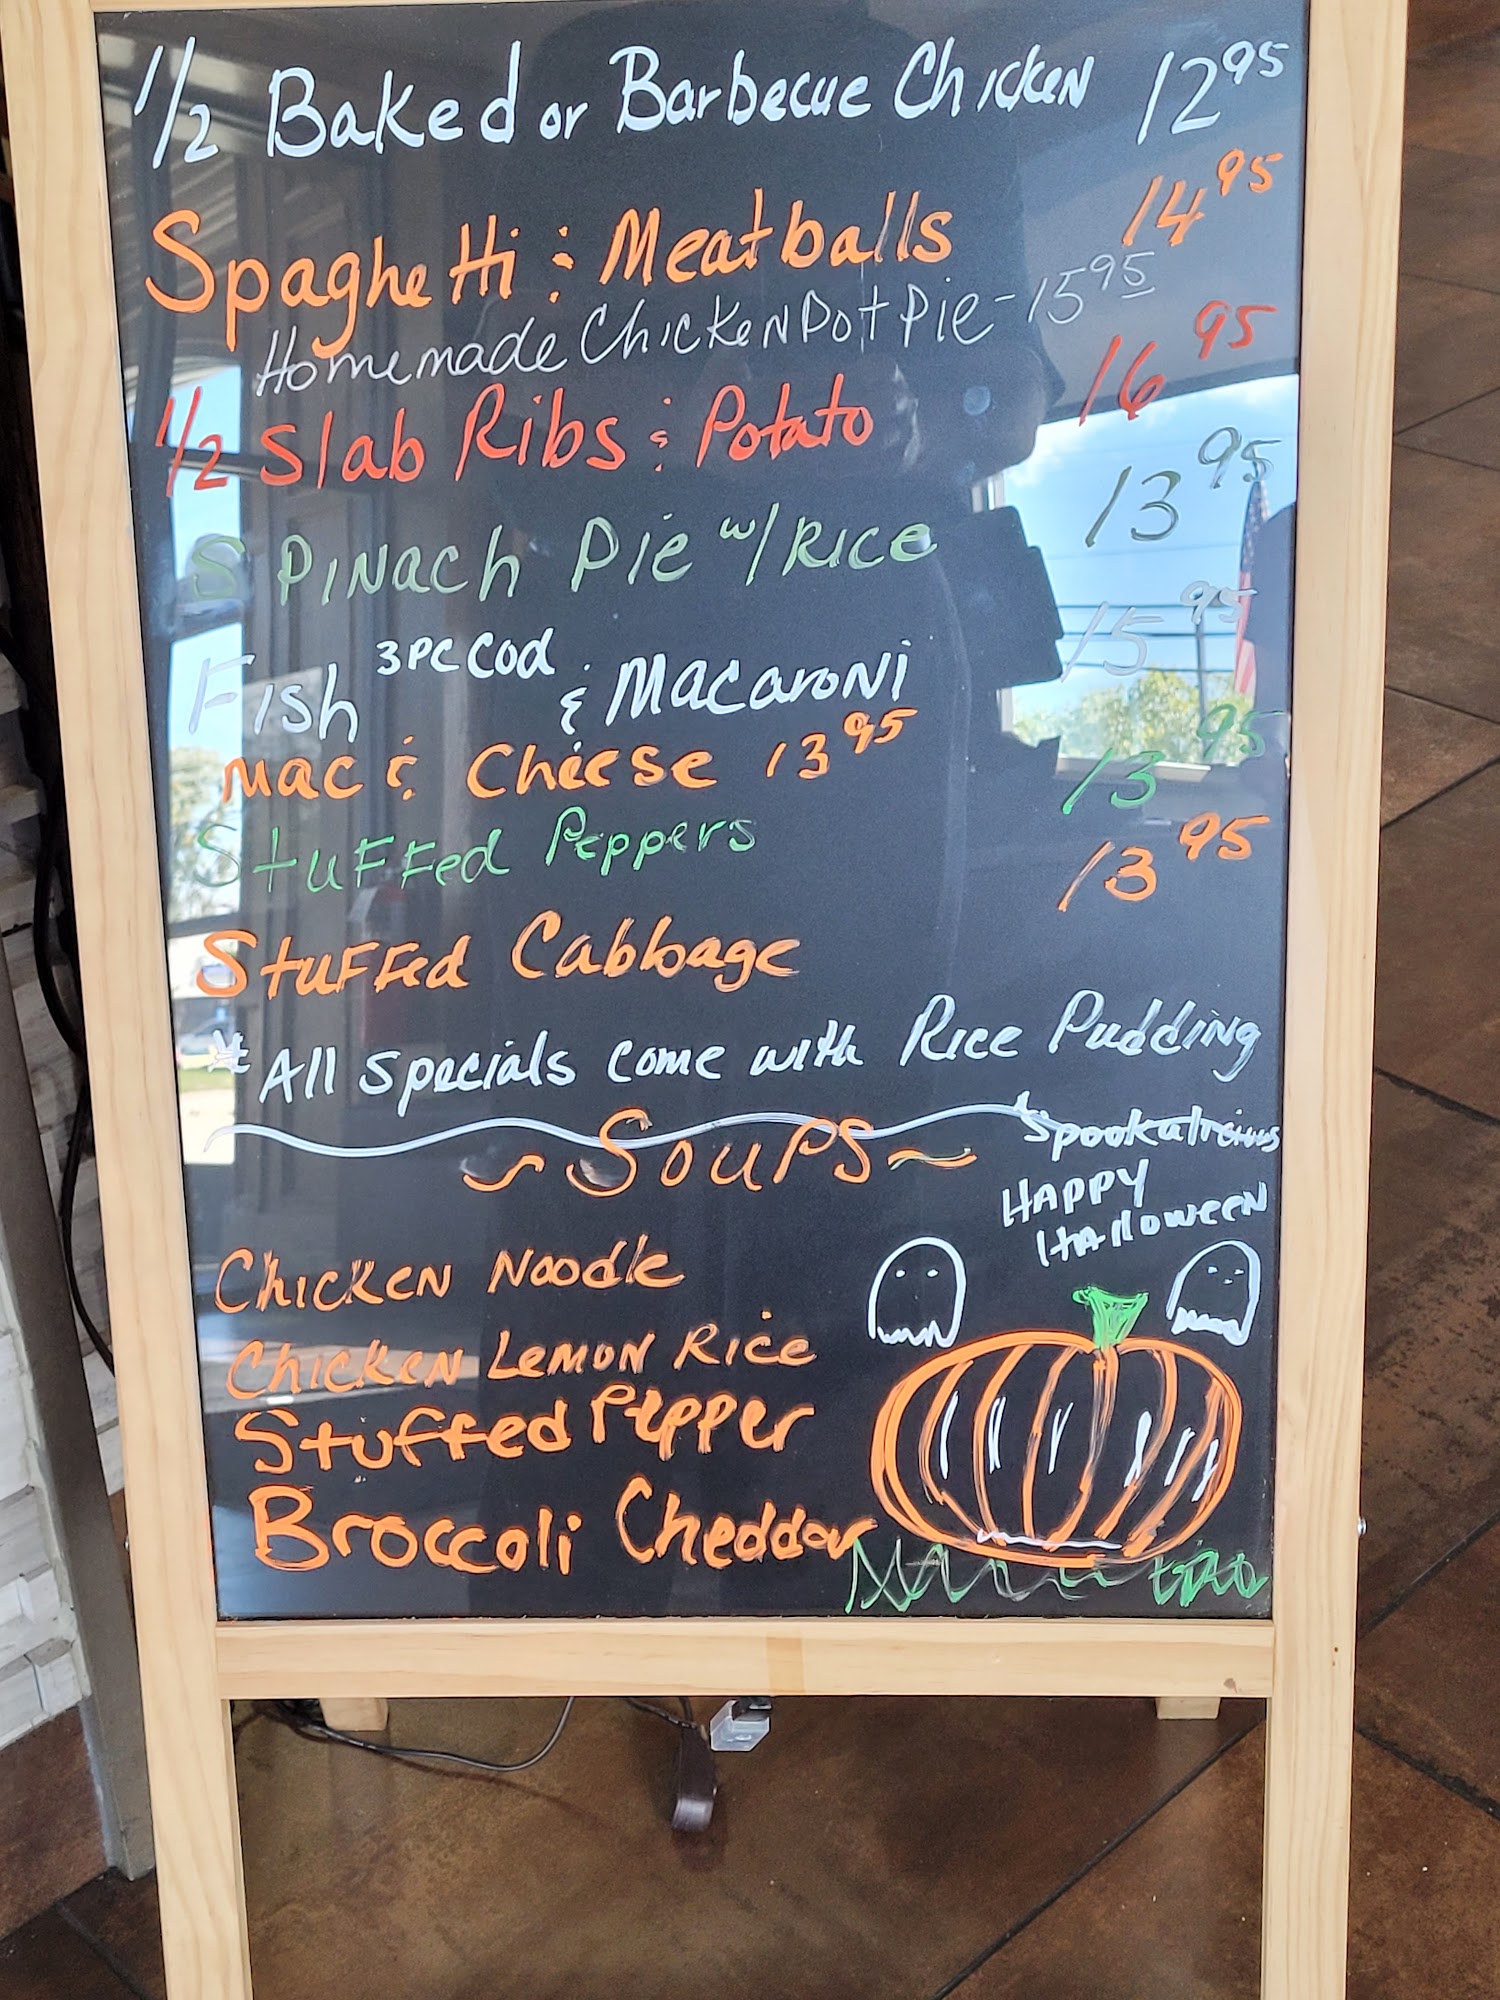 1/2 Baked or Barbecue Chicken 12 95
Spaghetti & Meatballs 14 95
Homemade Chicken Pot Pie - 15 95
1/2 Slab Ribs & Potato 16 95
Spinach Pie w/ Rice 13 95
Fish 3pc Cod & Macaroni 15 95
Mac & Cheese 13 95
Stuffed Peppers 13 95
Stuffed Cabbage 13 95
* All specials come with Rice Pudding
~ Soups ~
Spookalicious
Happy
Halloween
Chicken Noodle
Chicken Lemon Rice
Stuffed Pepper
Broccoli Cheddar